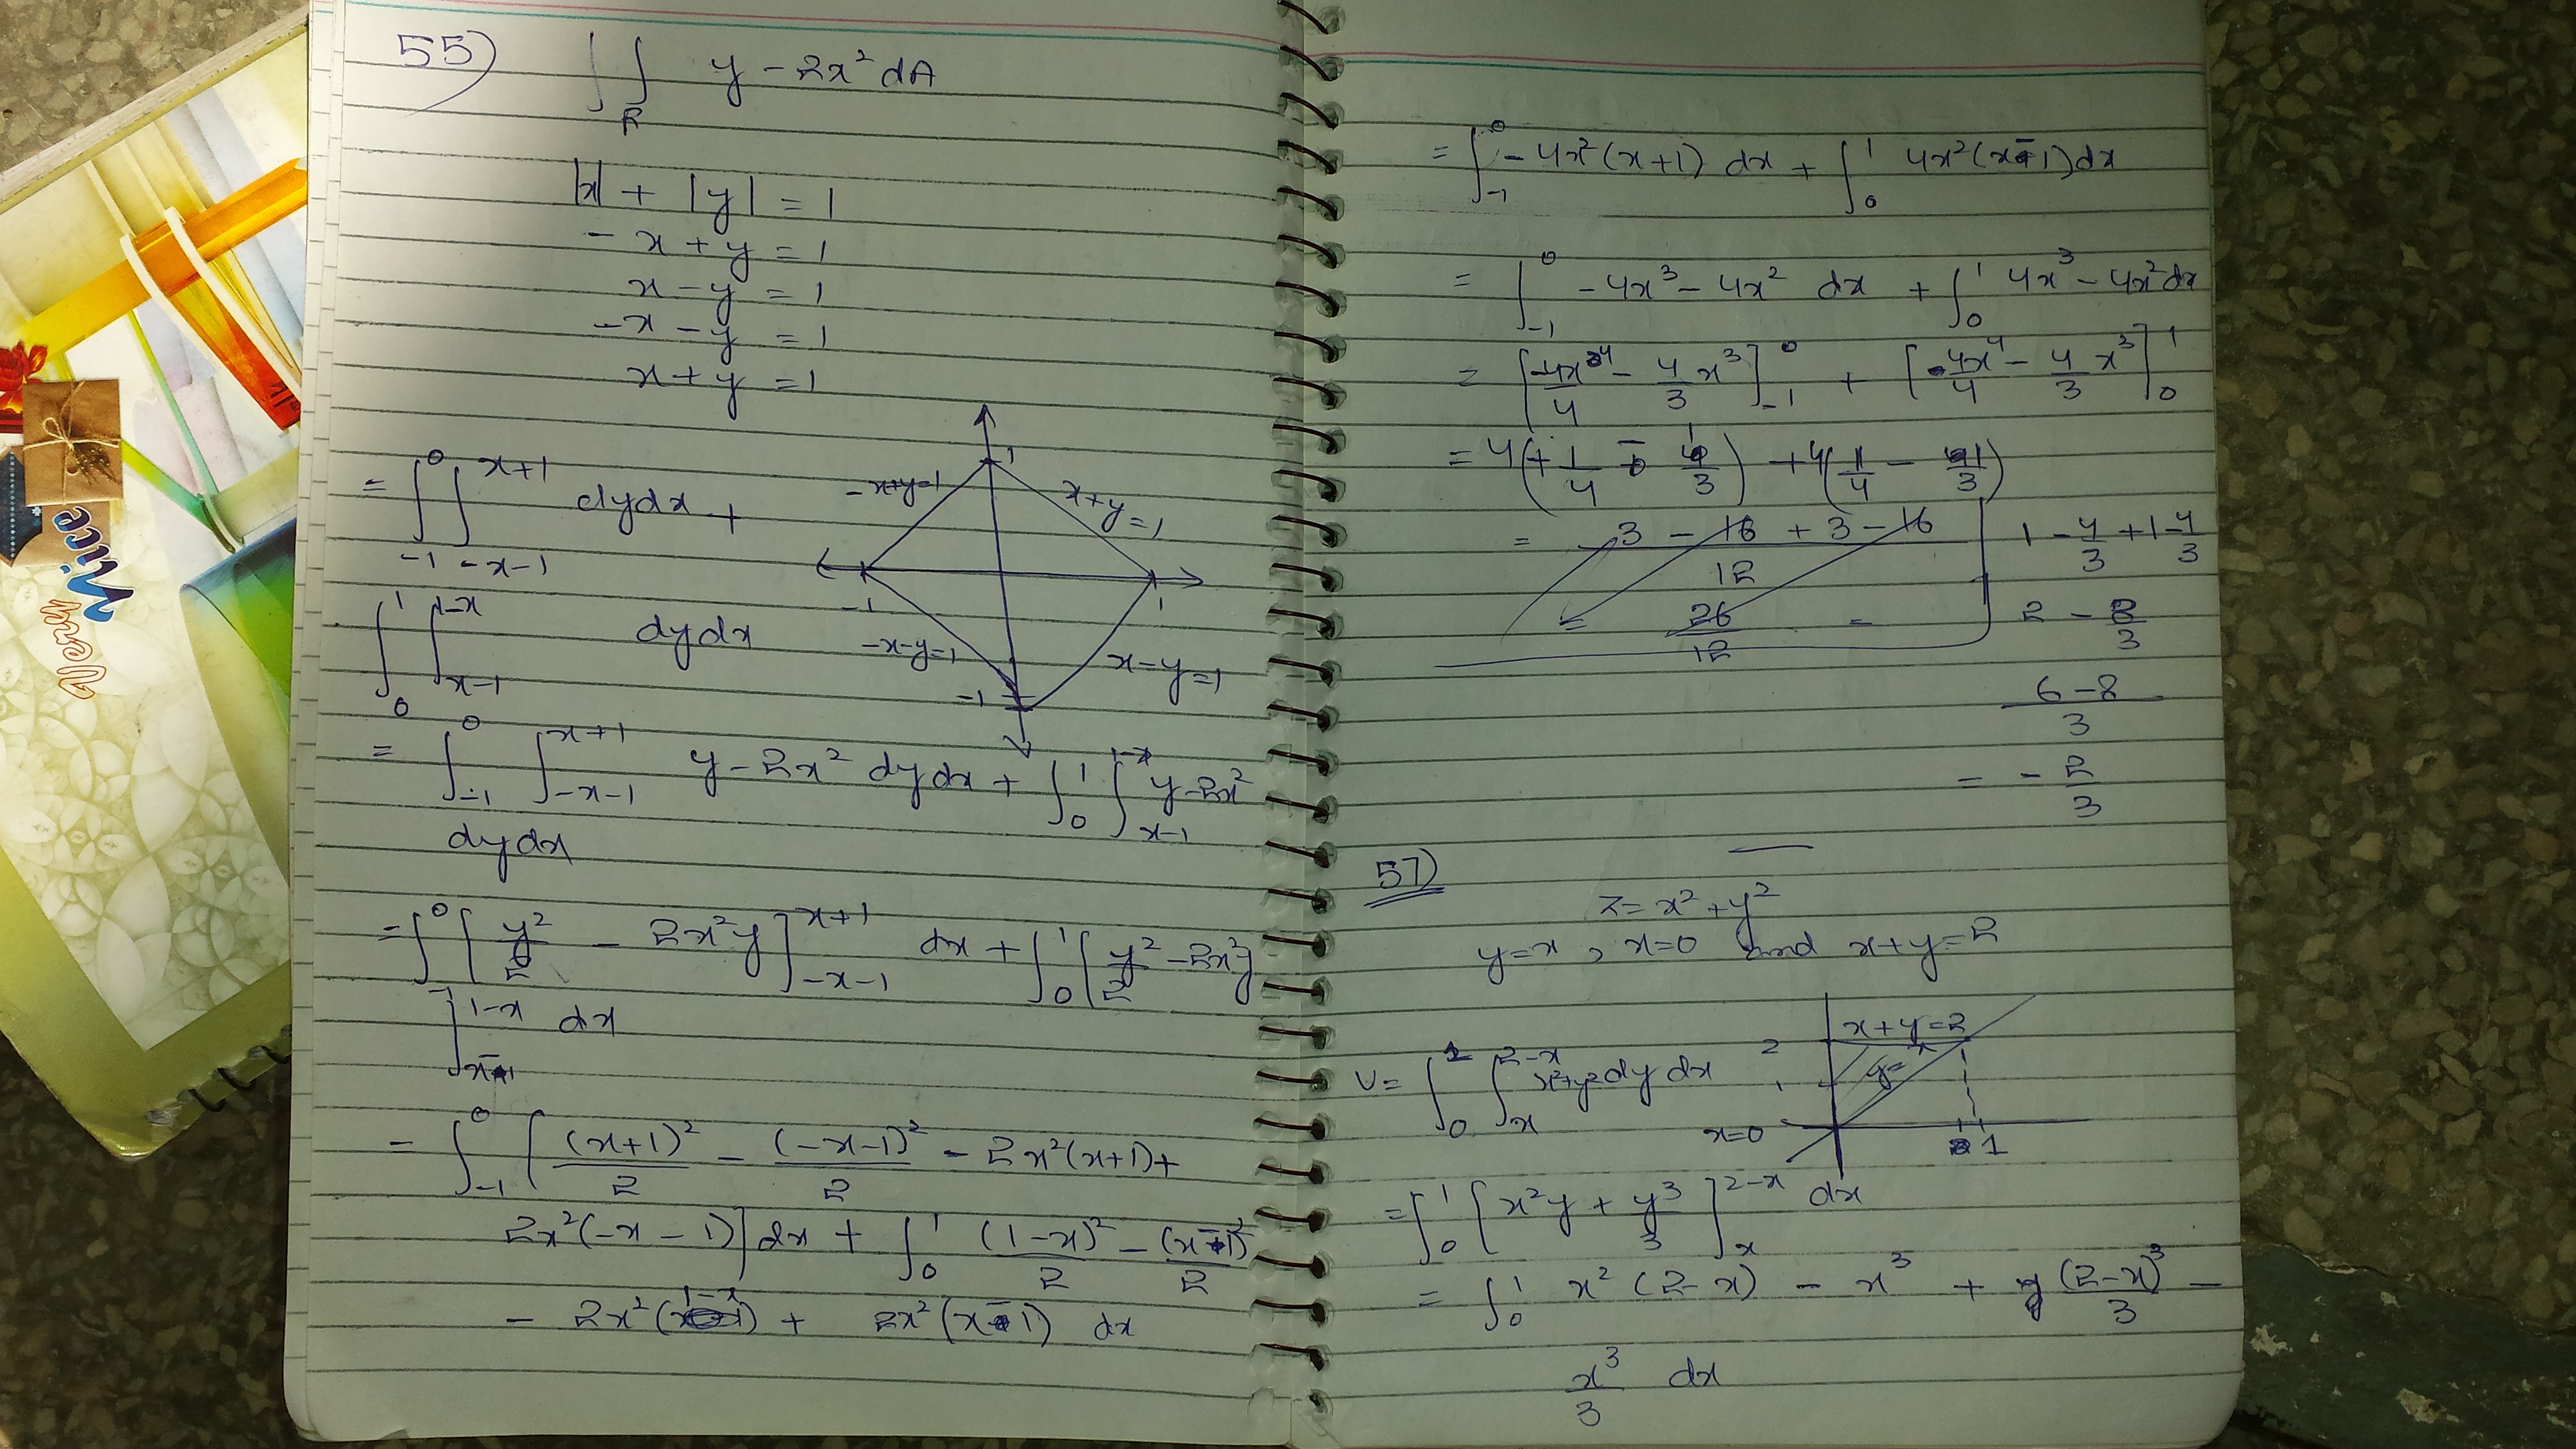 55) ∫∫_R y - 2x² dA
|x| + |y| = 1
- x + y = 1
x - y = 1
- x - y = 1
x + y = 1
= ∫_{-1}^{0} ∫_{-x-1}^{x+1} dy dx +
∫_{0}^{1} ∫_{x-1}^{1-x} dy dx
1
-x+y=1
x+y=1
-1
1
-x-y=1
x-y=1
-1
= ∫_{-1}^{0} ∫_{-x-1}^{x+1} y - 2x² dy dx + ∫_{0}^{1} ∫_{x-1}^{1-x} y - 2x²
dy dx
= ∫_{-1}^{0} [ y²/2 - 2x²y ]_{-x-1}^{x+1} dx + ∫_{0}^{1} [ y²/2 - 2x²y
]_{x-1}^{1-x} dx
= ∫_{-1}^{0} [ (x+1)²/2 - (-x-1)²/2 - 2x²(x+1) +
2x²(-x-1) ] dx + ∫_{0}^{1} (1-x)²/2 - (x-1)²/2
- 2x²(1-x) + 2x²(x-1) dx
= ∫_{-1}^{0} -4x²(x+1) dx + ∫_{0}^{1} 4x²(x-1) dx
= ∫_{-1}^{0} -4x³ - 4x² dx + ∫_{0}^{1} 4x³ - 4x² dx
= [ -4x⁴/4 - 4/3 x³ ]_{-1}^{0} + [ 4x⁴/4 - 4/3 x³ ]_{0}^{1}
= 4(+1/4 - 1/3) + 4(1/4 - 1/3)
= 3 - 16 + 3 - 16 / 12
1 - 4/3 + 1 - 4/3
= 26/12 =
2 - 8/3
6 - 8 / 3
= - 2/3
57)
z = x² + y²
y = x , x = 0 and x + y = 2
x + y = 2
2
y = x
1
x=0
1
V = ∫_{0}^{1} ∫_{x}^{2-x} x²+y² dy dx
= ∫_{0}^{1} [ x²y + y³/3 ]_{x}^{2-x} dx
= ∫_{0}^{1} x²(2-x) - x³ + (2-x)³/3 -
x³/3 dx
Mice